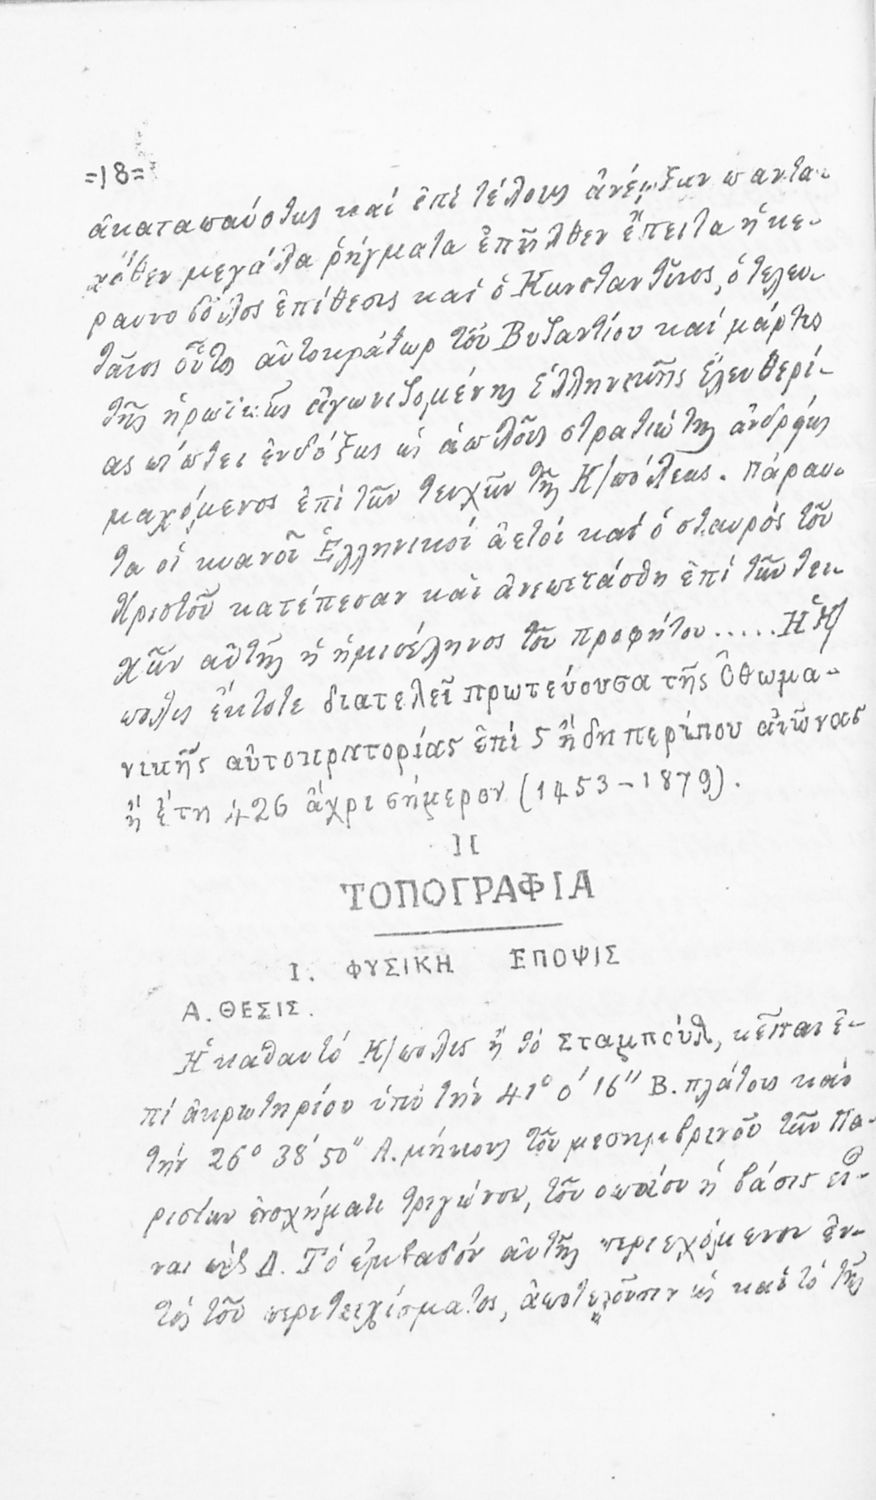 =18=
ἀκαταπαύστως καί ἐπί τέλους ἀνέῳξαν παντα-
χόθεν μεγάλα ῥήγματα ἐπῆλθεν ἔπειτα ἡ κε-
ραυνοβόλος ἐπίθεσις καί ὁ Κωνσταντῖνος, ὁ τελευ-
ταῖος οὗτος αὐτοκράτωρ τοῦ Βυζαντίου καί μάρτυς
τῆς ἡρωϊκῶς ἀγωνιζομένης Ἑλληνικῆς ἐλευθερί-
ας πίπτει ἐνδόξως ὡς ἁπλοῦς στρατιώτης ἀνδρείως
μαχόμενος ἐπί τῶν τειχῶν τῆς Κ/πόλεως. Πάραυ-
τα οἱ κυανοῖ Ἑλληνικοί ἀετοί καί ὁ σταυρός τοῦ
Χριστοῦ κατέπεσαν καί ἀνεπετάσθη ἐπί τῶν τει-
χῶν αὐτῆς ἡ ἡμισέληνος τοῦ προφήτου..... Ἡ Κ/
πολις ἔκτοτε διατελεῖ πρωτεύουσα τῆς Ὀθωμα-
νικῆς αὐτοκρατορίας ἐπί 5 ἤδη περίπου αἰῶνας
ἤ ἔτη 426 ἄχρι σήμερον (1453-1879).
II
ΤΟΠΟΓΡΑΦΙΑ
I. ΦΥΣΙΚΗ ΕΠΟΨΙΣ
Α. ΘΕΣΙΣ.
Ἡ καθαυτό Κ/πολις ἤ τό Σταμπούλ, κεῖται ἐ-
πί ἀκρωτηρίου ὑπό τήν 41° 0' 16" Β. πλάτους καί
τήν 26° 38' 50" Α. μήκους τοῦ μεσημβρινοῦ τῶν Πα-
ρισίων ἐνσχήματι τριγώνου, τοῦ ὁποίου ἡ βάσις εἶ-
ναι πρός Δ. Τό ἐμβαδόν αὐτῆς περιεχόμενον ἐν-
τός τοῦ περιτειχίσματος, ἀποτελοῦσιν ὡς καί τό τῆς